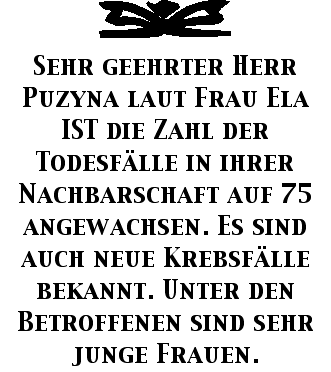 Sehr geehrter Herr
Puzyna laut Frau Ela
IST die Zahl der
Todesfälle in ihrer
Nachbarschaft auf 75
angewachsen. Es sind
auch neue Krebsfälle
bekannt. Unter den
Betroffenen sind sehr
junge Frauen.